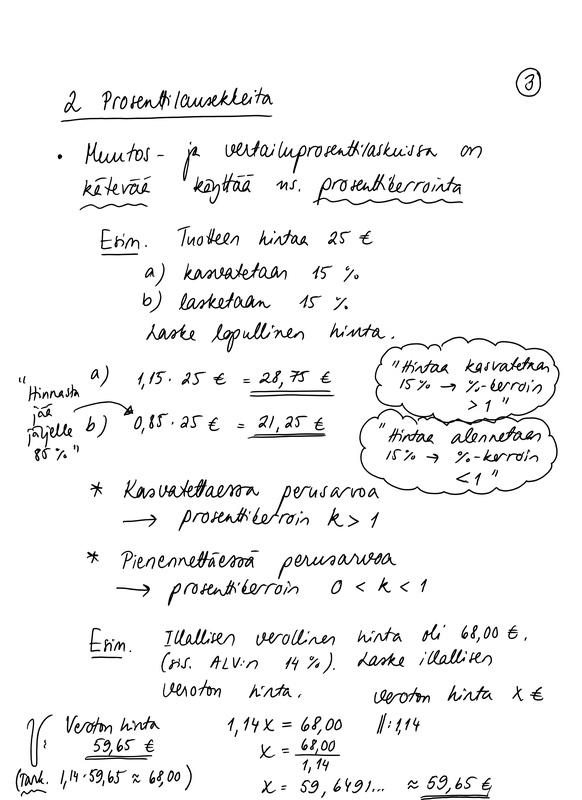 3
2 Prosenttilausekkeita
• Muutos- ja vertailuprosenttilaskuissa on
kätevää käyttää ns. prosenttikerrointa
Esim. Tuotteen hintaa 25 €
a) kasvatetaan 15 %
b) lasketaan 15 %
Laske lopullinen hinta.
a) 1,15 · 25 € = 28,75 €
"Hinnasta
jää
järjelle
85 %"
b) 0,85 · 25 € = 21,25 €
"Hintaa kasvatetaan
15 % → %-kerroin
> 1"
"Hintaa alennetaan
15 % → %-kerroin
< 1"
* Kasvatettaessa perusarvoa
→ prosenttikerroin k > 1
* Pienennettäessä perusarvoa
→ prosenttikerroin 0 < k < 1
Esim. Illallisen verollinen hinta oli 68,00 €.
(sis. ALV:n 14 %). Laske illallisen
veroton hinta.
veroton hinta x €
1,14x = 68,00 ||:1,14
x = 68,00/1,14
x = 59,6491... ≈ 59,65 €
V: Veroton hinta
59,65 €
(Tark. 1,14 · 59,65 ≈ 68,00)